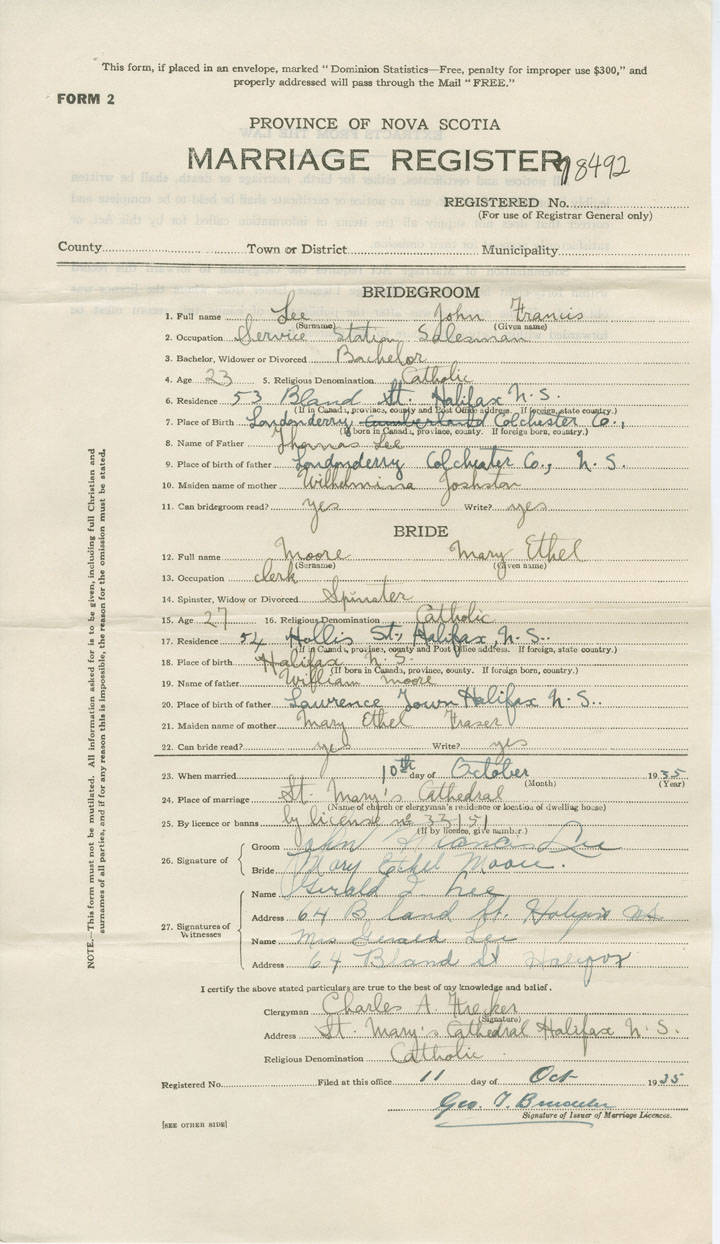 This form, if placed in an envelope, marked "Dominion Statistics—Free, penalty for improper use $300," and
properly addressed will pass through the Mail "FREE."
FORM 2
PROVINCE OF NOVA SCOTIA
MARRIAGE REGISTER
78492
REGISTERED No.
(For use of Registrar General only)
County Town or District Municipality
BRIDEGROOM
1. Full name Lee John Francis
(Surname) (Given name)
2. Occupation Service Station Salesman
3. Bachelor, Widower or Divorced Bachelor
4. Age 23 5. Religious Denomination Catholic
6. Residence 53 Bland St. Halifax N.S.
(If in Canada, province, county and Post Office address. If foreign, state country.)
7. Place of Birth Londonderry Cumberland Colchester Co.,
(If born in Canada, province, county. If foreign born, country.)
8. Name of Father Thomas Lee
9. Place of birth of father Londonderry Colchester Co., N.S.
10. Maiden name of mother Wilhelmina
11. Can bridegroom read? yes Write? yes
BRIDE
12. Full name Moore Mary Ethel
(Surname) (Given name)
13. Occupation clerk
14. Spinster, Widow or Divorced Spinster
15. Age 27 16. Religious Denomination Catholic
17. Residence 54 Hollis St., Halifax, N.S.
(If in Canada, province, county and Post Office address. If foreign, state country.)
18. Place of birth Halifax N.S.
(If born in Canada, province, county. If foreign born, country.)
19. Name of father William Moore
20. Place of birth of father Lawrence Town Halifax N.S.
21. Maiden name of mother Mary Ethel Fraser
22. Can bride read? yes Write? yes
23. When married 10th day of October 1935
(Month) (Year)
24. Place of marriage St. Mary's Cathedral
(Name of church or clergyman's residence or location of dwelling house)
25. By licence or banns by license no 33151
(If by licence, give number.)
26. Signature of
Groom John Francis Lee
Bride Mary Ethel Moore.
27. Signatures of Witnesses
Name Gerald J Lee
Address 64 Bland St. Halifax NS
Name Mrs Gerald Lee
Address 64 Bland St Halifax
I certify the above stated particulars are true to the best of my knowledge and belief.
Clergyman Charles A.
(Signature)
Address St. Mary's Cathedral Halifax N.S.
Religious Denomination Catholic
Registered No. Filed at this office 11 day of Oct 1935
Geo. T.
Signature of Issuer of Marriage Licences.
[SEE OTHER SIDE]
NOTE.—This form must not be mutilated. All information asked for is to be given, including full Christian and
surnames of all parties, and if for any reason this is impossible, the reason for the omission must be stated.